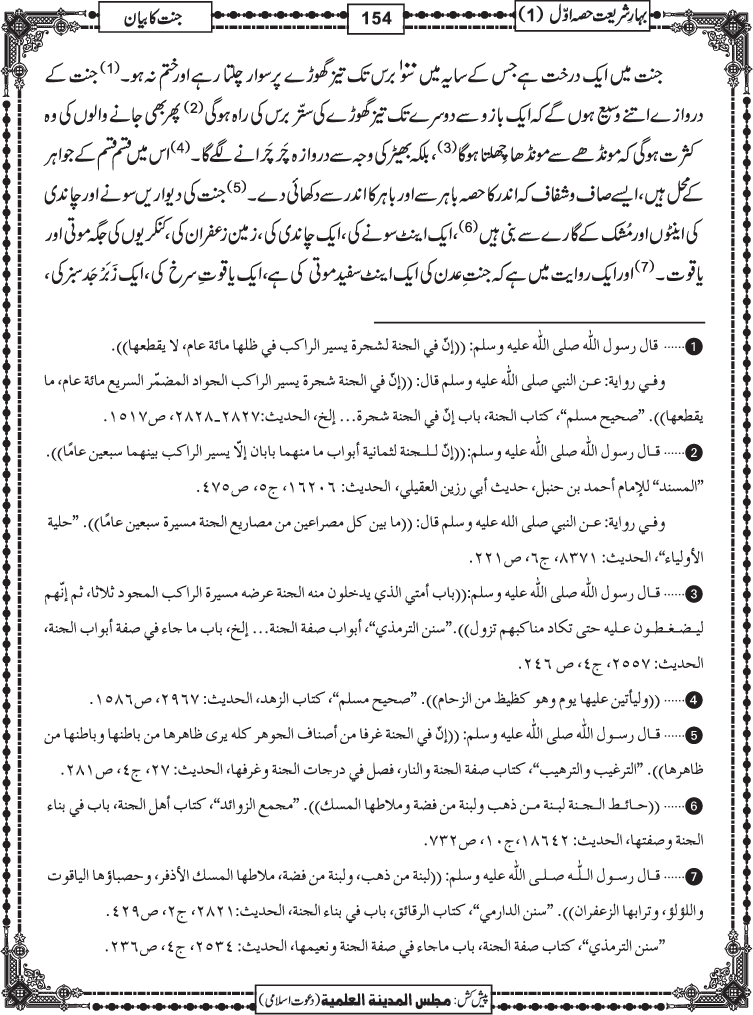 بہارِ شریعت حصہ اوّل (1)
154
جنت کا بیان
جنت میں ایک درخت ہے جس کے سایہ میں سَو ۱۰۰ برس تک تیز گھوڑے پر سوار چلتا رہے اور ختم نہ ہو۔(1) جنت کے
دروازے اتنے وسیع ہوں گے کہ ایک بازو سے دوسرے تک تیز گھوڑے کی ستّر برس کی راہ ہوگی(2) پھر بھی جانے والوں کی وہ
کثرت ہوگی کہ مونڈھے سے مونڈھا چھلتا ہوگا(3)، بلکہ بھیڑ کی وجہ سے دروازہ چَرچَرانے لگے گا۔(4) اس میں قسم قسم کے جواہر
کے محل ہیں، ایسے صاف و شفاف کہ اندر کا حصہ باہر سے اور باہر کا اندر سے دکھائی دے۔(5) جنت کی دیواریں سونے اور چاندی
کی اینٹوں اور مُشک کے گارے سے بنی ہیں(6)، ایک اینٹ سونے کی، ایک چاندی کی، زمین زعفران کی، کنکریوں کی جگہ موتی اور
یاقوت۔(7) اور ایک روایت میں ہے کہ جنتِ عدن کی ایک اینٹ سفید موتی کی ہے، ایک یاقوتِ سرخ کی، ایک زَبَرْجَد سبز کی،
1 ...... قال رسول اللّٰه صلی اللّٰه علیه وسلم: ((إنّ في الجنة لشجرة يسير الراكب في ظلها مائة عام، لا يقطعها)).
وفـي رواية: عـن النبي صلى اللّٰه عليه وسلم قال: ((إنّ في الجنة شجرة يسير الراكب الجواد المضمّر السريع مائة عام، ما
يقطعها)). ”صحيح مسلم“، كتاب الجنة، باب إنّ في الجنة شجرة... إلخ، الحديث:٢٨٢٧ـ٢٨٢٨، ص١٥١٧.
2 ...... قـال رسول اللّٰه صلى اللّٰه عليه وسلم:((إنّ لـلـجنة لثمانية أبواب ما منهما بابان إلّا يسير الراكب بينهما سبعين عامًا)).
”المسند“ للإمام أحمد بن حنبل، حديث أبي رزين العقيلي، الحديث: ١٦٢٠٦، ج٥، ص٤٧٥.
وفـي رواية: عـن النبي صلى الله عليه وسلم قال: ((ما بين كل مصراعين من مصاريع الجنة مسيرة سبعين عامًا)). ”حلية
الأولياء“، الحديث: ٨٣٧١، ج٦، ص٢٢١.
3 ...... قـال رسول اللّٰه صلى اللّٰه عليه وسلم:((باب أمتي الذي يدخلون منه الجنة عرضه مسيرة الراكب المجود ثلاثا، ثم إنّهم
ليـضـغـطـون عـليه حتى تكاد مناكبهم تزول)).”سنن الترمذي“، أبواب صفة الجنة... إلخ، باب ما جاء في صفة أبواب الجنة،
الحديث: ٢٥٥٧، ج٤، ص ٢٤٦.
4 ...... ((وليأتين عليها يوم وهو كظيظ من الزحام)). ”صحيح مسلم“، كتاب الزهد، الحديث: ٢٩٦٧، ص١٥٨٦.
5 ...... قـال رسـول اللّٰه صلى اللّٰه عليه وسلم: ((إنّ في الجنة غرفا من أصناف الجوهر كله يرى ظاهرها من باطنها وباطنها من
ظاهرها)). ”الترغيب والترهيب“، كتاب صفة الجنة والنار، فصل في درجات الجنة وغرفها، الحديث: ٢٧، ج٤، ص٢٨١.
6 ...... ((حـائـط الـجـنة لبنـة مـن ذهب ولبنة من فضة وملاطها المسك)). ”مجمع الزوائد“، كتاب أهل الجنة، باب في بناء
الجنة وصفتها، الحديث: ١٨٦٤٢،ج١٠، ص٧٣٢.
7 ...... قـال رسـول الـلّٰـه صلـى اللّٰه عليه وسلم: ((لبنة من ذهب، ولبنة من فضة، ملاطها المسك الأذفر، وحصباؤها الياقوت
واللؤلؤ، وترابها الزعفران)). ”سنن الدارمي“، كتاب الرقائق، باب في بناء الجنة، الحديث:٢٨٢١، ج٢، ص٤٢٩.
”سنن الترمذي“، كتاب صفة الجنة، باب ماجاء في صفة الجنة ونعيمها، الحديث: ٢٥٣٤، ج٤، ص٢٣٦.
پیش کش: مجلس المدینة العلمیة (دعوتِ اسلامی)